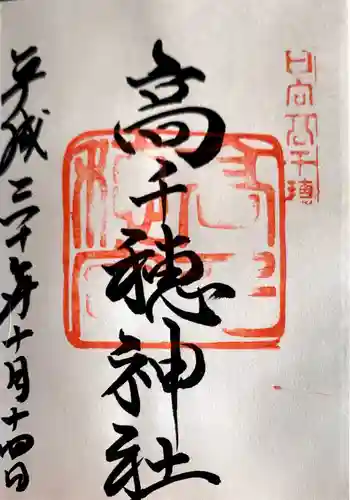 日向高千穂
高千穂神社
平成三十年十月十四日